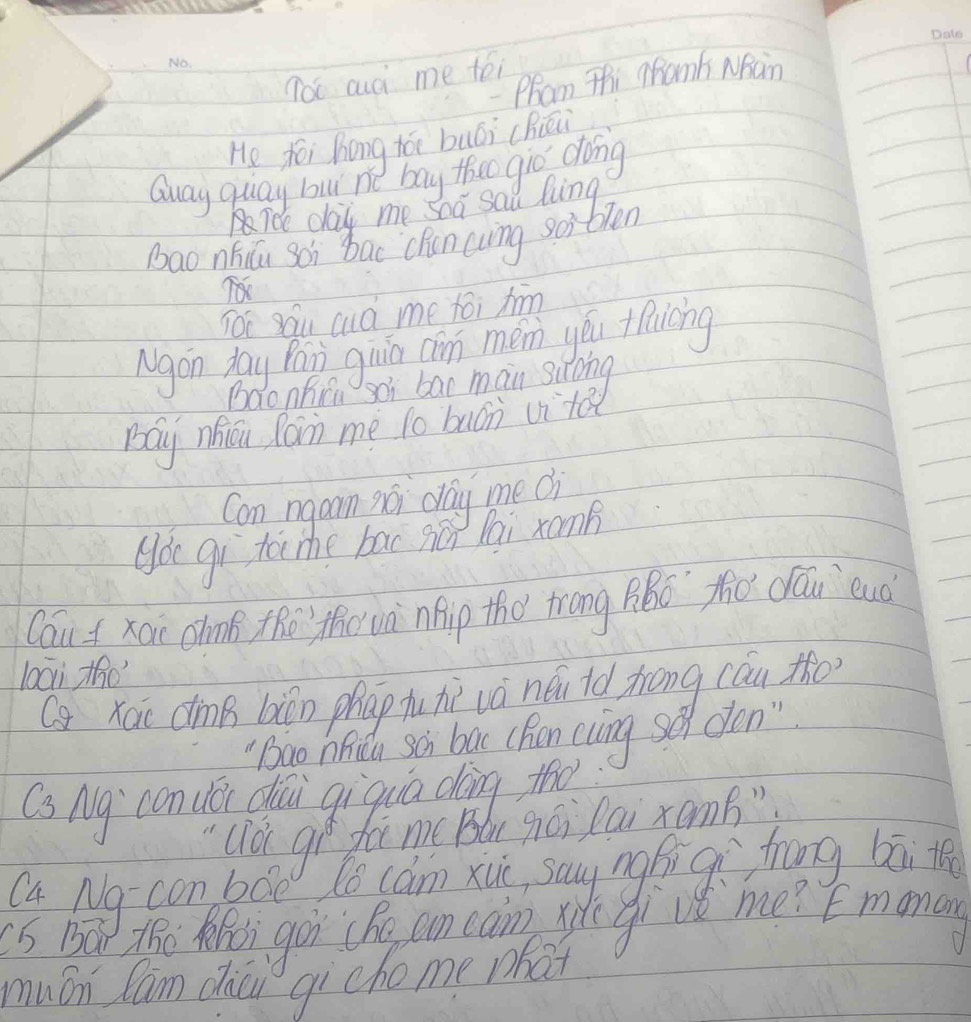 No.
Date
Tóc của mẹ tôi
- Phan Thị Thanh Nhàn
Mẹ tôi hong tóc buổi chiều
Quay quay bụi nước bay theo gió đông
Tóc dài mẹ xoã sau lưng
Bao nhiêu sợi bạc chen cùng sợi đen
Tóc
Tóc sâu của mẹ tôi tìm
Ngón tay lần giữa ấm mềm yêu thương
Bao nhiêu sợi bạc màu sương
Bấy nhiêu lần mẹ lo buồn vì tôi
Con ngoan rồi đấy mẹ ơi
Ước gì tóc mẹ bạc rồi lại xanh
Câu 1 xác định thể thơ và nhịp thơ trong khổ thơ đầu của
bài thơ
C2 xác định biện pháp tu từ và nêu td trong câu thơ
"Bao nhiêu sợi bạc chen cùng sợi đen".
C3 Ng` con ước điều gì qua dòng thơ:
"Ước gì tóc mẹ bạc rồi lại xanh".
C4 Ng- con bộc lộ cảm xúc, suy nghĩ gì trong bài thơ
C5 Bài thơ khơi gợi cho em cảm xúc gì về mẹ? E mong
muốn làm điều gì cho mẹ nhất